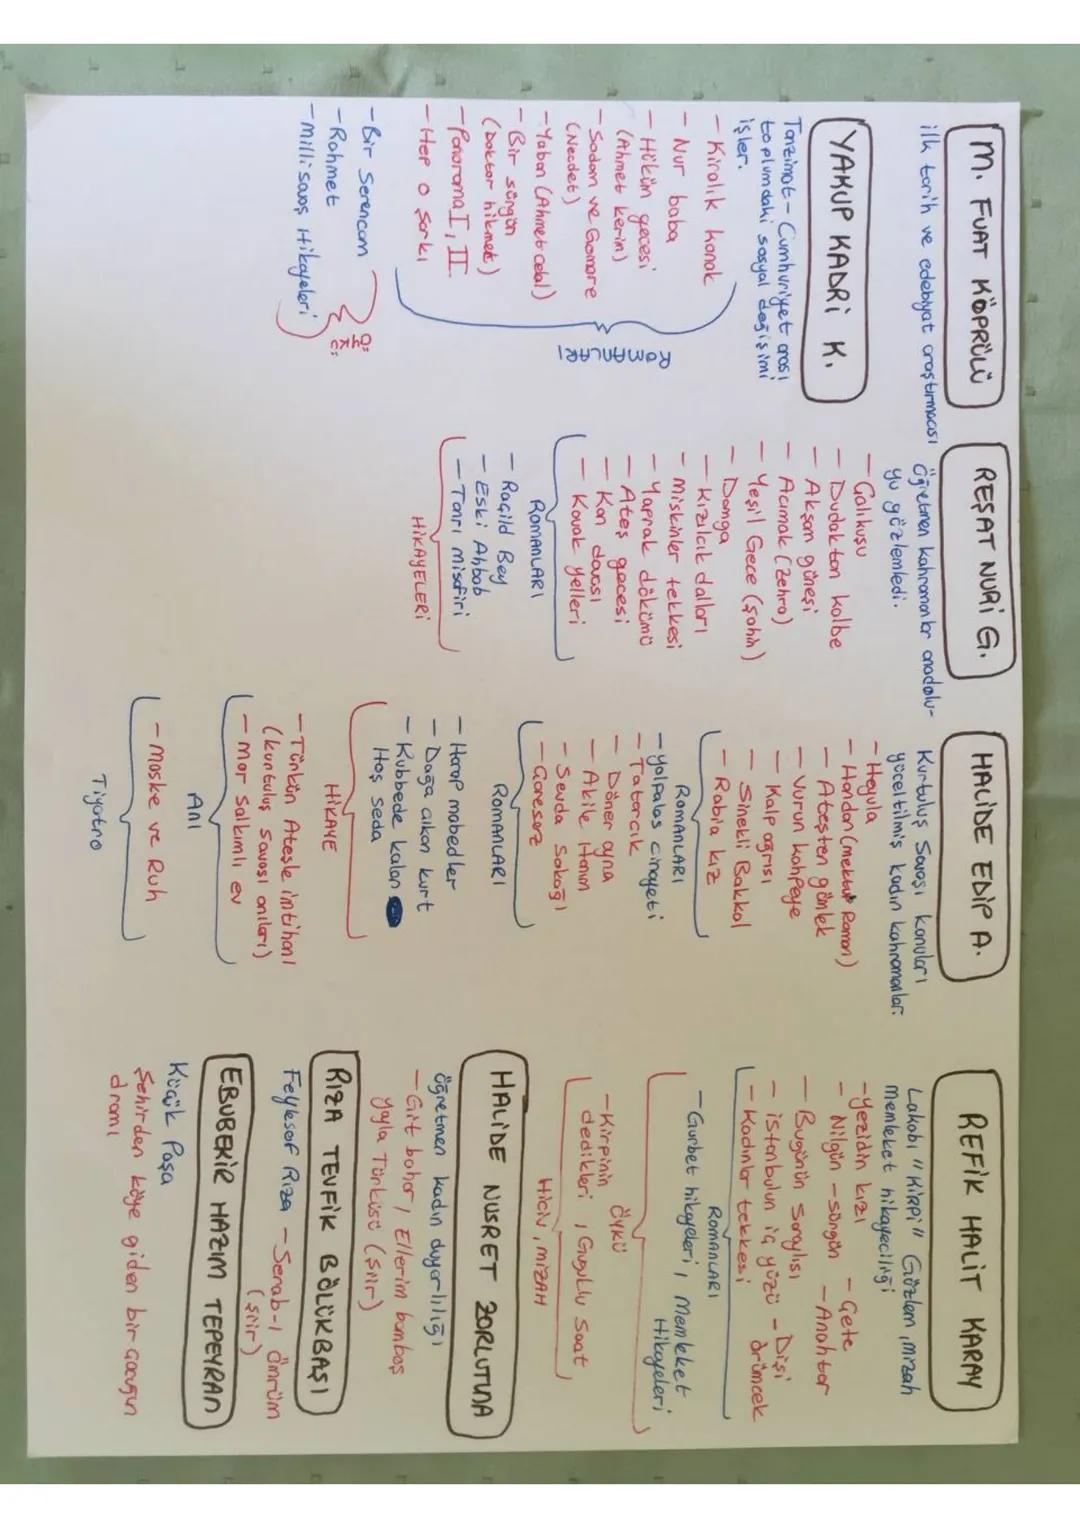 M. FUAT KÖPRÜLÜ
ilk tarih ve edebiyat araştırmacısı
YAKUP KADRİ K.
Tanzimat-Cumhuriyet arası
toplumdaki sosyal değişimi
işler.
- Kiralık konak
- Nur baba
- Hüküm gecesi
(Ahmet kerim)
- Sodom ve Gomore
(Necdet)
- Yaban (Ahmet celal)
- Bir sürgün
(Doktor hikmet)
- Panorama I, II
- Hep o şarkı
ROMANLARI
- Bir Serencam
- Rahmet
- milli savaş Hikayeleri
REŞAT NURİ G.
Öğretmen kahramanlar anadolu-
yu gözlemledi.
- Çalıkuşu
- Dudaktan kalbe
- Akşam güneşi
- Acımak (Zehra)
- Yeşil Gece (Şahin)
- Damga
- Kızılcık dalları
- Miskinler tekkesi
- Yaprak dökümü
- Ateş gecesi
- Kan davası
- Kavak yelleri
ROMANLARI
- Raçild Bey
- Eski Ahbab
- Tanrı misafiri
HİKAYELERİ
HALİDE EDİP A.
Kurtuluş Savaşı konuları
yüceltilmiş kadın kahramanlar.
- Heyula
- Handan (mektup Roman)
- Ateşten gömlek
- Vurun kahpeye
- Kalp ağrısı
- Sinekli Bakkal
- Rabia kız
ROMANLARI
- yolpalas cinayeti
- Tatarcık
- Döner ayna
- Akile Hanım
- Sevda Sokağı
- Çaresaz
ROMANLARI
- Harap mabedler
- Dağa çıkan kurt
- Kubbede kalan
Hoş seda
HİKAYE
- Türkün Ateşle imtihanı
(kurtuluş savaşı anıları)
- mor salkımlı ev
ANI
- maske ve Ruh
Tiyatro
REFİK HALİT KARAY
Lakabı "KİRPİ" Gözlem, mizah
memleket hikayeciliği
- yezidin kızı - Çete
- Nilgün - sürgün - Anahtar
- Bugünün Saraylısı
- istanbulun iç yüzü - Dişi
- Kadınlar tekkesi örümcek
ROMANLARI
- Gurbet hikayeleri, Memleket
Hikayeleri
ÖYKÜ
- Kirpinin
dedikleri, Guguklu Saat,
Hiciv, mizah
HALİDE NUSRET ZORLUTUNA
öğretmen kadın duyarlılığı
- Git bahar, Ellerim bomboş
yayla Türküsü (şiir)
RIZA TEVFİK BÖLÜKBAŞI
Feylesof Rıza - Serab-ı ömrüm
(şiir)
EBUBEKİR HAZIM TEPEYRAN
Küçük Paşa
Şehirden köye giden bir çocuğun
dramı